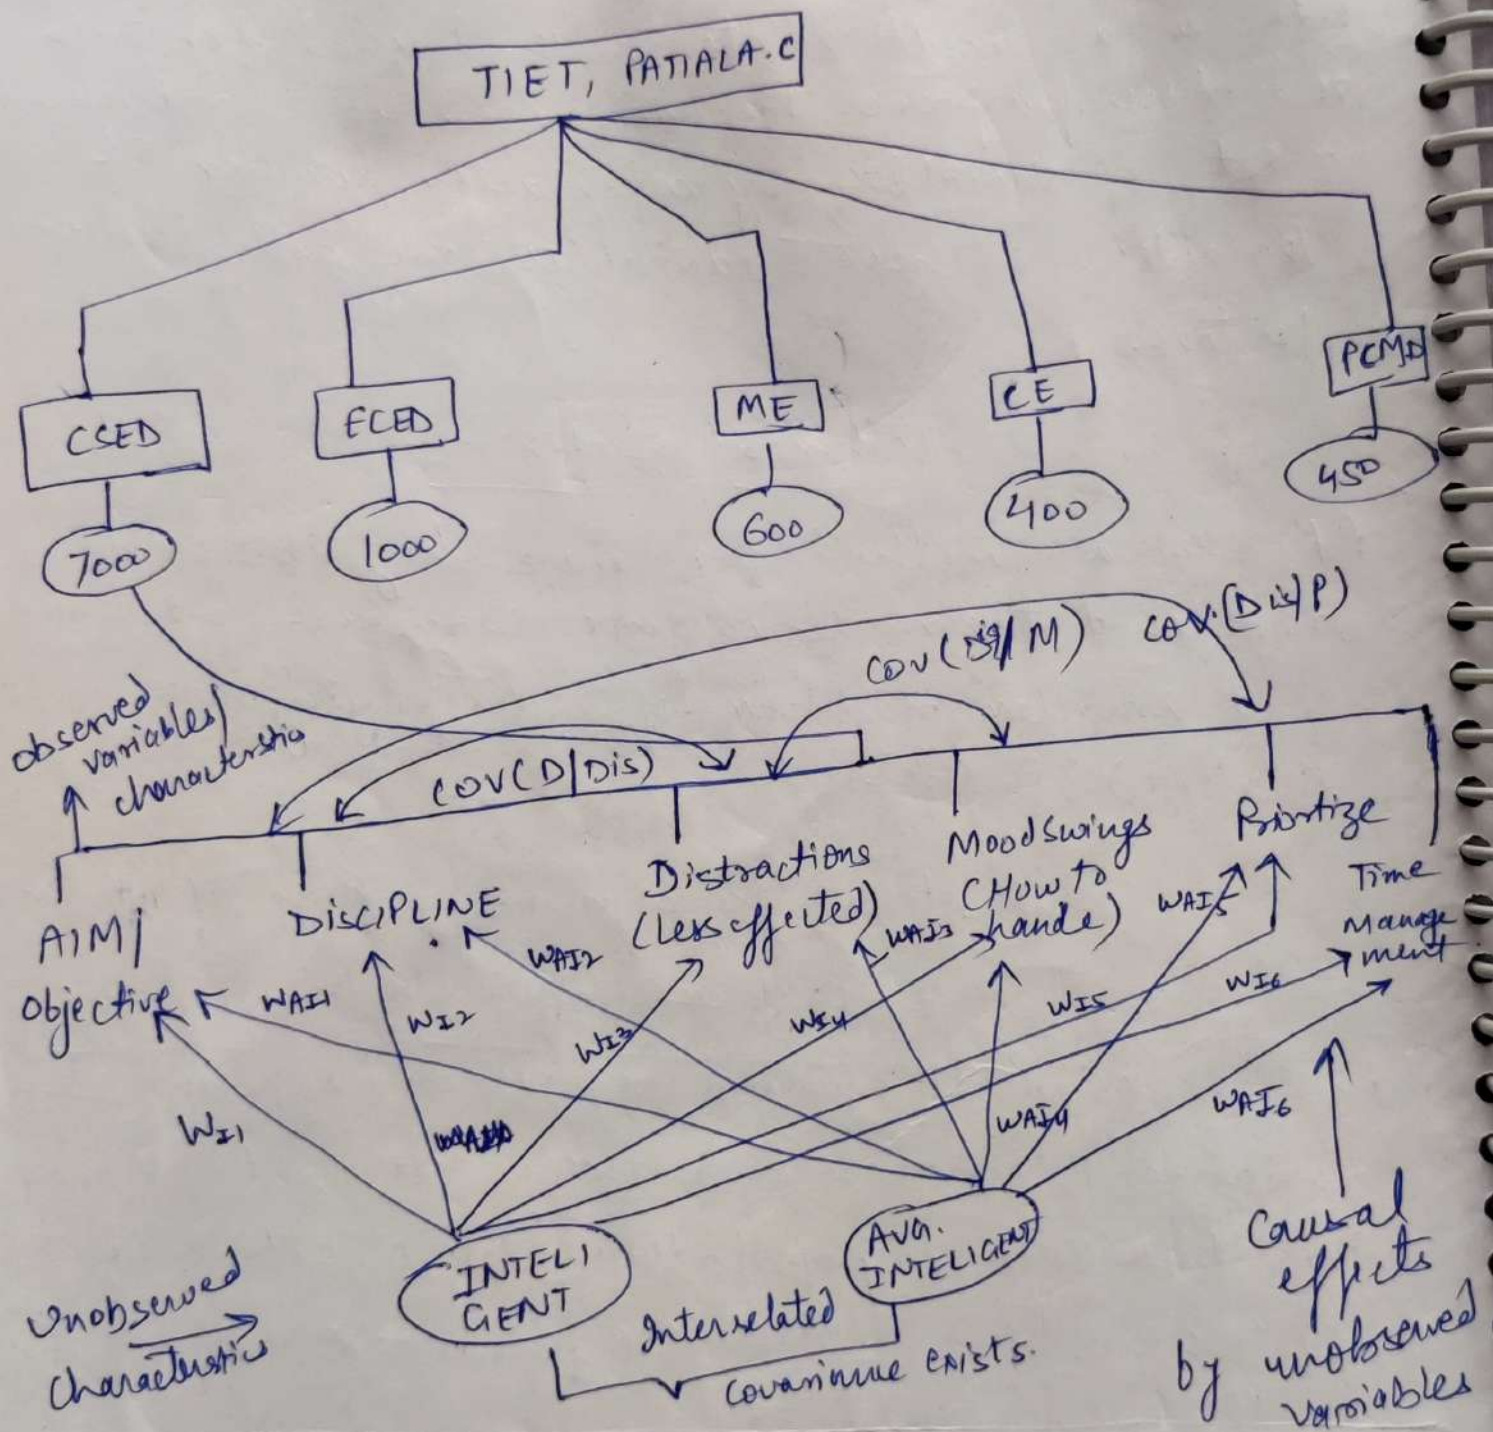 TIET, PATIALA.C
CSED
ECED
ME
CE
PCMD
7000
1000
600
400
450
COV(Dis/M)
COV.(Dis/P)
Observed
variables/
characterstic
COV(D/Dis)
AIM/
Objective
DISCIPLINE
Distractions
(less effected)
Moodswings
(How to
hande)
Time
Manage
ment
WAI1
WAI2
WAI3
WAI5
WI1
WI2
WI3
WI4
WI5
WI6
WAI4
WAI6
INTELI
GENT
AVG.
INTELIGENT
Unobserved
Characterstics
Interrelated
exists.
Causal
effects
by unobserved
variables